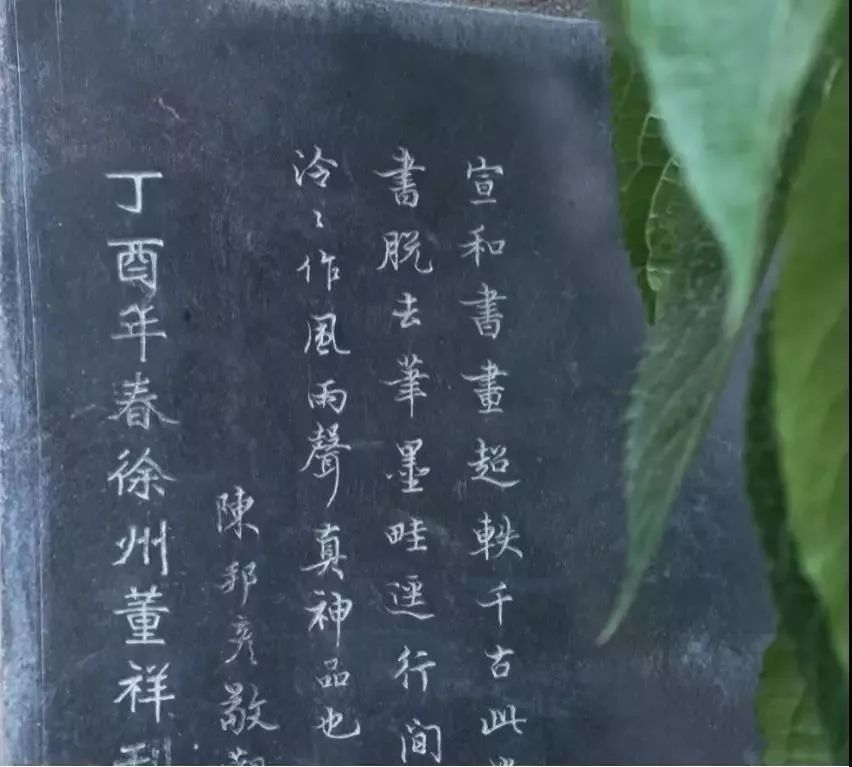 宣和書畫超軼千古此
書脱去筆墨畦逕行間
泠〻作風雨聲真神品也
陳邦彦敬
丁酉年春徐州董祥